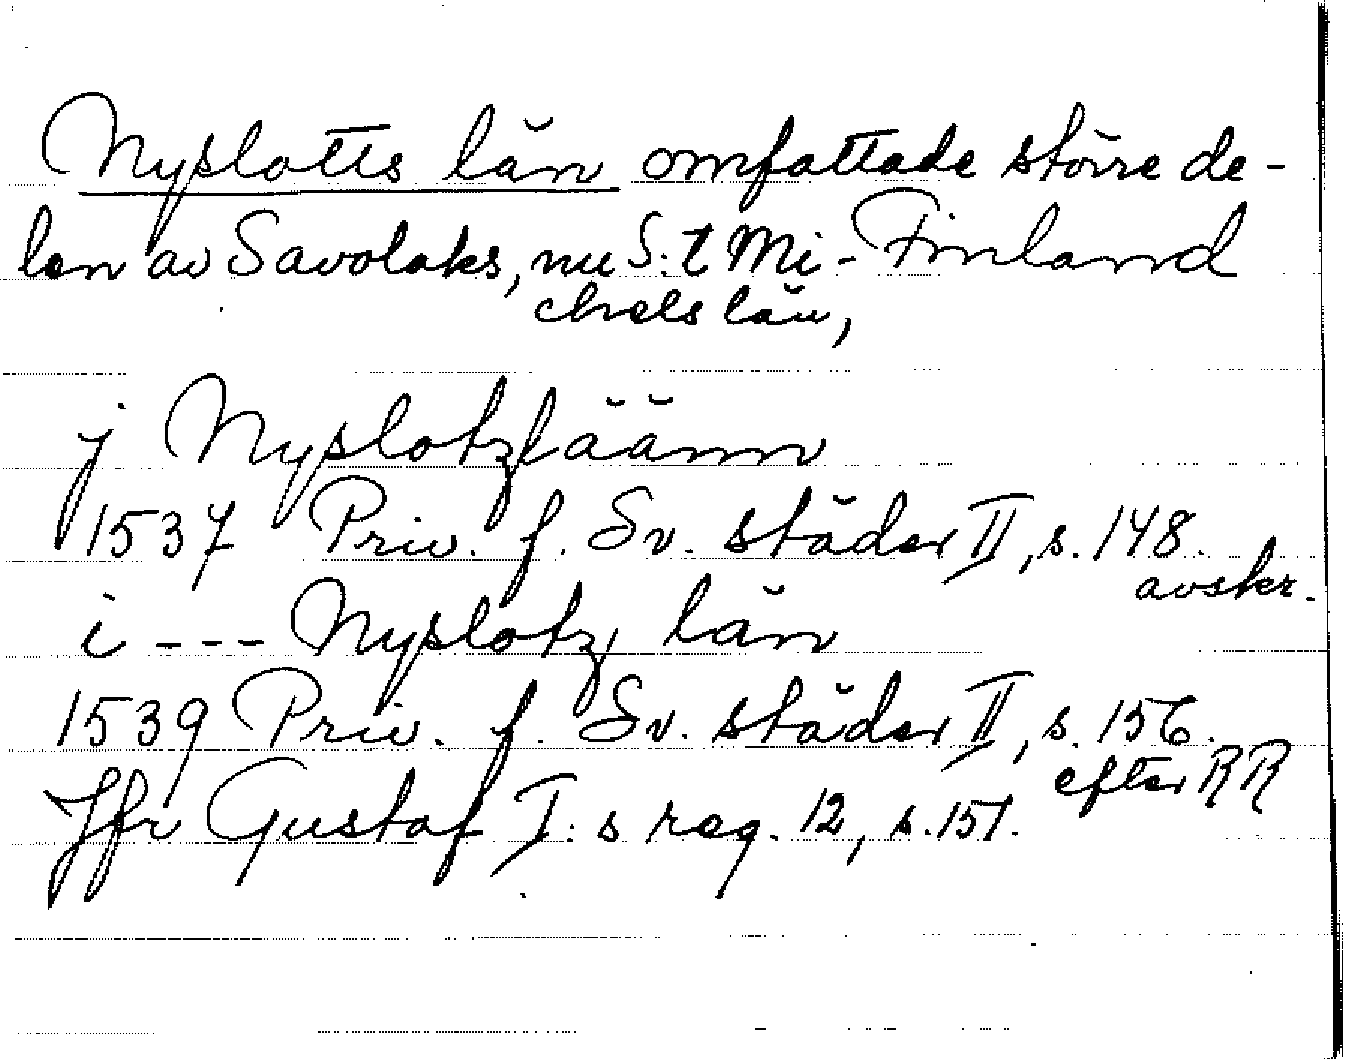 Nyslotts län omfattade större de-
len av Savolaks, nu S:t Mi- Finland
chels län,
j Nyslotzläänn
1537 Priv. f. Sv. städer II, s. 148.
avskr.
i --- Nyslotz län
1539 Priv. f. Sv. städer II, s. 156.
efter RR
Jfr Gustaf I:s reg. 12, s. 151.